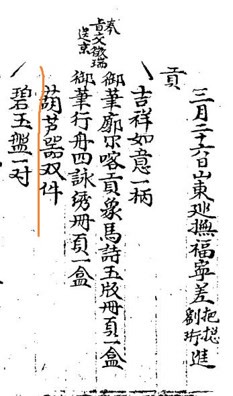 三月二十六日山東巡撫福寧差把捴劉珩進
貢
吉祥如意一柄
御筆廓尔喀貢象馬詩玉版冊頁一盒
御筆行舟四詠綉冊頁一盒
奉旨交徵瑞送京
葫芦器双件
碧玉盤一对